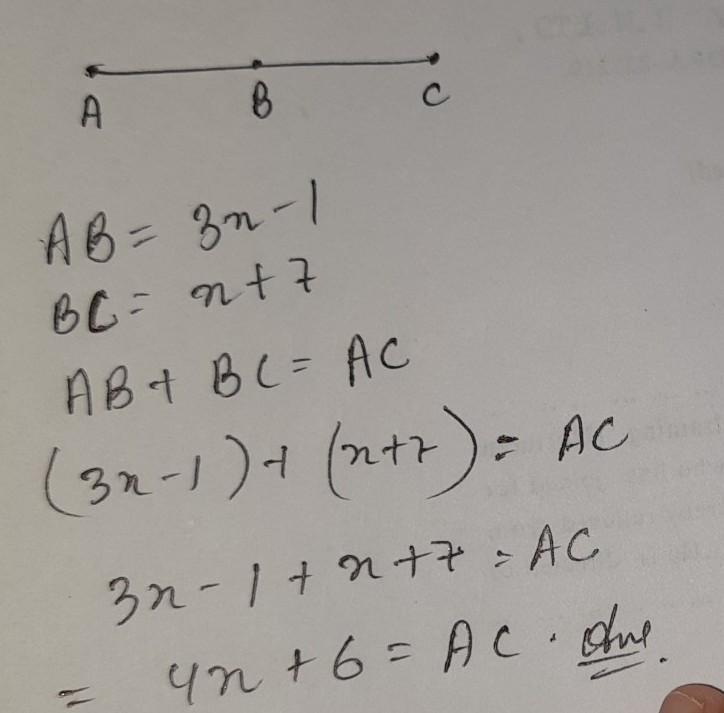 A B C
AB = 3x-1
BC = x+7
AB + BC = AC
(3x-1) + (x+7) = AC
3x-1+x+7 = AC
= 4x+6 = AC. Ans.